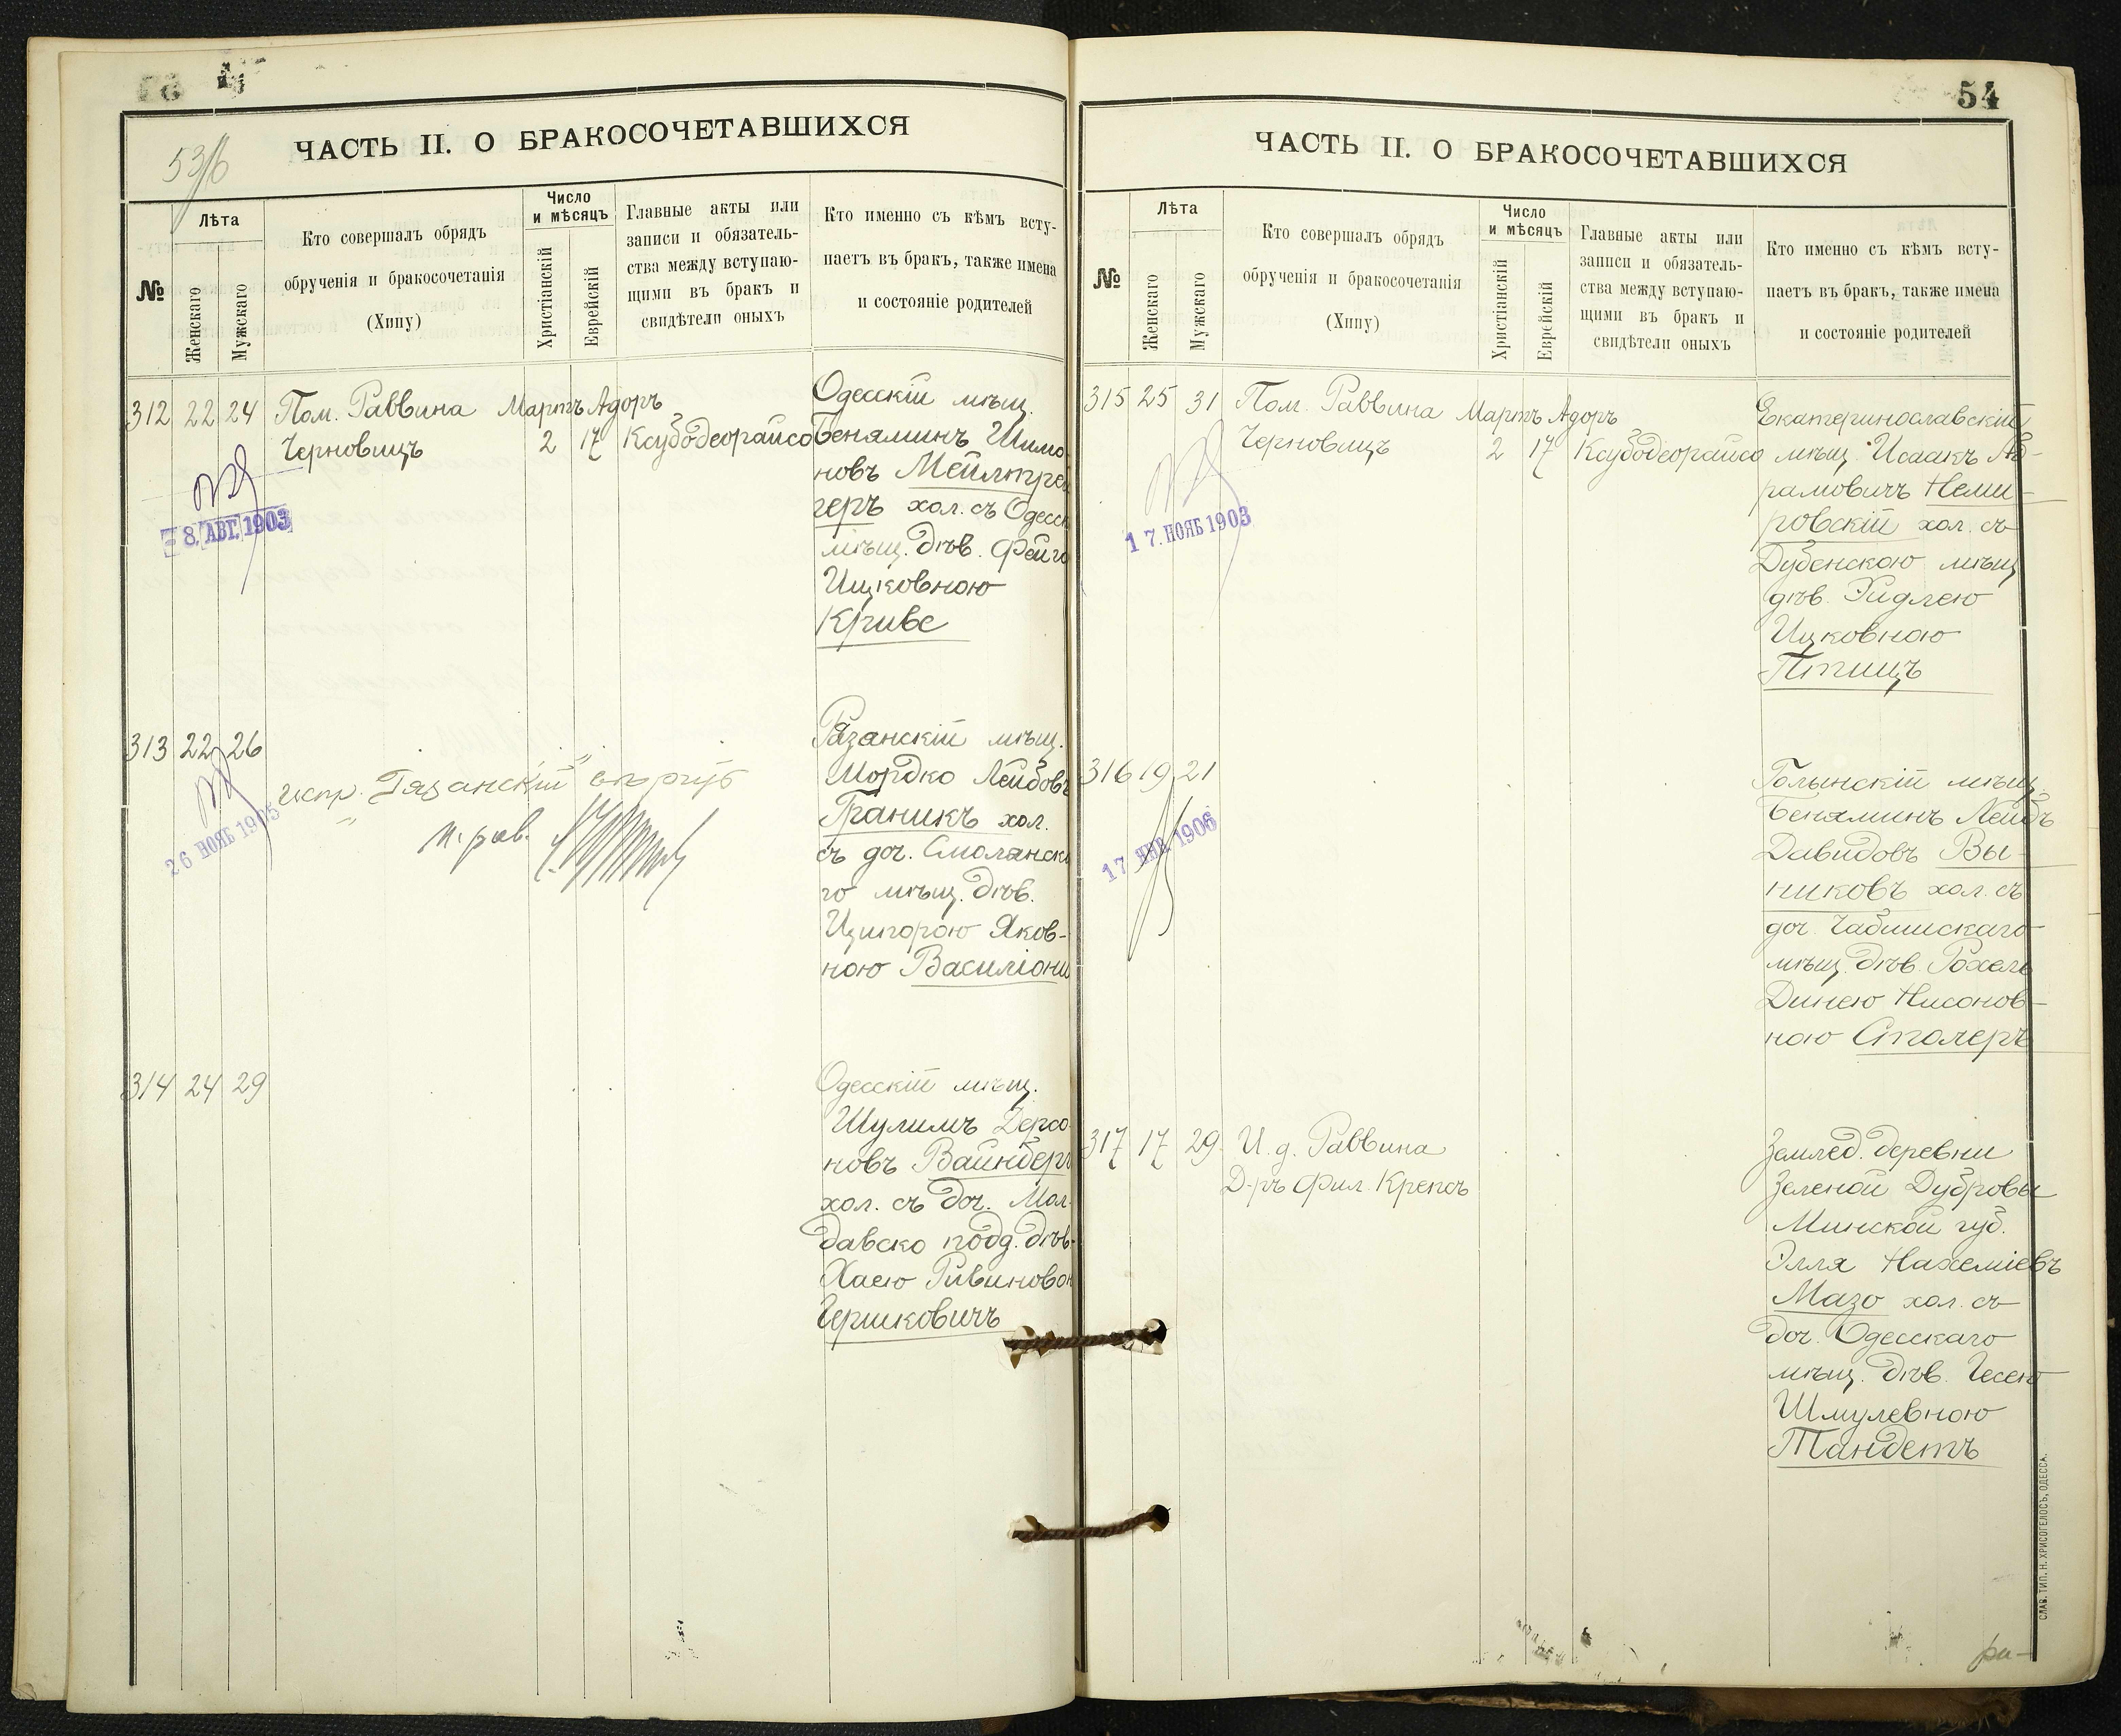 53/б
ЧАСТЬ II. О БРАКОСОЧЕТАВШИХСЯ
№
Лѣта
Женскаго
Мужскаго
Кто совершалъ обрядъ
обрученія и бракосочетанія
(Хипу)
Число
и мѣсяцъ
Христіанскій
Еврейскій
Главные акты или
записи и обязатель-
ства между вступаю-
щими въ бракъ и
свидѣтели оныхъ
Кто именно съ кѣмъ всту-
паетъ въ бракъ, также имена
и состояніе родителей
312 22 24 Пом. Раввина Мартъ Адоръ
Черновицъ 2 17 Ксубодеорайсо
Одесскій мѣщ.
Беняминъ Шимо
новъ Мейлитрей
геръ хол. съ Одесск
мѣщ. дѣв. Фейго
Ицковною
Криве
8. АВГ. 1903
313 22 26
испр. „Рязанскій" вѣрить
п. рав.
26 НОЯБ 1905
Рязанскій мѣщ.
Мордко Лейбовъ
Граникъ хол.
съ доч. Смолянска
го мѣщ. дѣв.
Ципорою Яков-
ною Василіони
314 24 29
Одесскій мѣщ.
Шулимъ Герсо
новъ Вайнберг
хол. съ доч. Мол-
давско подд. дѣв.
Хаею Рувиново
Гершковичъ
54
ЧАСТЬ II. О БРАКОСОЧЕТАВШИХСЯ
№
Лѣта
Женскаго
Мужскаго
Кто совершалъ обрядъ
обрученія и бракосочетанія
(Хипу)
Число
и мѣсяцъ
Христіанскій
Еврейскій
Главные акты или
записи и обязатель-
ства между вступаю-
щими въ бракъ и
свидѣтели оныхъ
Кто именно съ кѣмъ всту-
паетъ въ бракъ, также имена
и состояніе родителей
315 25 31 Пом. Раввина Мартъ Адоръ
Черновицъ 2 17 Ксубодеорайсо
Екатеринославскій
мѣщ. Исаакъ Аб-
рамовичъ Неми-
ровскій хол. съ
Дубенскою мѣщ
дѣв. Хидлею
Ицковною
Птицъ
17. НОЯБ 1903
316 19 21
17 ЯНВ. 1906
Голынскій мѣщ.
Беняминъ Лейбъ
Давидовъ Вы-
никовъ хол. съ
доч. Чабишскаго
мѣщ. дѣв. Рохель
Динею Нисонов-
ною Столеръ
317 17 29 И. д. Раввина
Д-ръ Фил. Крепсъ
Землед. деревни
Зеленой Дубровы
Минской губ.
Элля Нахеміевъ
Мазо хол. съ
доч. Одесскаго
мѣщ. дѣв. Гесею
Шмулевною
Тандетъ
СЛАВ. ТИП. Н. ХРИСОГЕЛОСЪ, ОДЕССА.